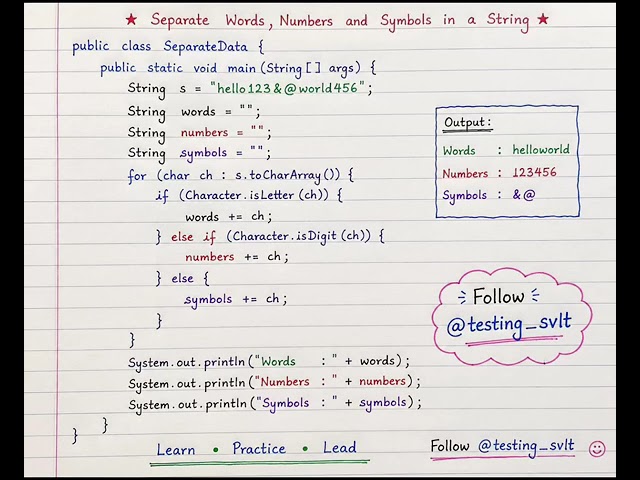 ★ Separate Words, Numbers and Symbols in a String ★
public class SeparateData {
public static void main (String[] args) {
String s = "hello123&@world456";
String words = "";
String numbers = "";
String symbols = "";
for (char ch : s.toCharArray()) {
if (Character.isLetter(ch)) {
words += ch;
} else if (Character.isDigit(ch)) {
numbers += ch;
} else {
symbols += ch;
}
}
System.out.println("Words : " + words);
System.out.println("Numbers : " + numbers);
System.out.println("Symbols : " + symbols);
}
}
Output:
Words : helloworld
Numbers : 123456
Symbols : &@
Follow
@testing_svlt
Learn • Practice • Lead
Follow @testing_svlt